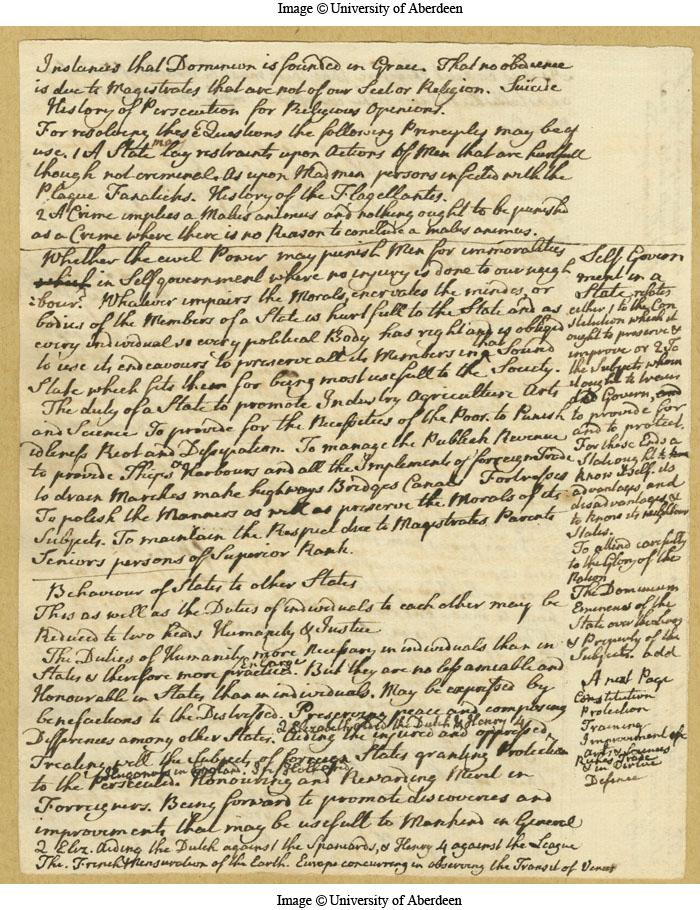 Image © University of Aberdeen
Instances that Dominion is founded in Grace. That no obedience
is due to Magistrates that are not of our Sect or Religion. Suicide
History of Persecution for Religious Opinions.
For resolving these Questions the following Principles may be of
use. 1 A State may lay restraints upon Actions of Men that are hurtfull
though not criminal. As upon Mad men persons infected with the
Plague Fanaticks. History of the Flagellantes.
2 A Crime implies a Malus animus and nothing ought to be punished
as a Crime where there is no Reason to conclude a malus animus.
Whether the civil Power may punish Men for immoralities
in Self government where no injury is done to our neigh
bour. Whatever impairs the Morals, enervates the minds, or
bodies of the Members of a State is hurtfull to the State and as
every individual so every political Body has right and is obliged
to use its endeavours to preserve all its Members in that Sound
State which fits them for being most usefull to the Society.
The duty of a State to promote Industry Agriculture Arts
and Science To provide for the Necessities of the Poor. to Punish
idleness Riot and Dissipation. To manage the Publick Revenue
to provide Ships Harbours and all the Implements of forreign Trade
to drain Marches make highways Bridges Canals Fortresses
To polish the Manners as well as preserve the Morals of its
Subjects. To maintain the Respect due to Magistrates Parents
Seniors persons of Superior Rank.
Self Govern
ment in a
State relates
either 1 to the Con
stitution which it
ought to preserve &
improve or 2 To
the Subjects whom
it ought to
Govern, and
to provide for
and to protect.
For these Ends a
State ought to know
know itself, its
advantages and
disadvantages &
to know its neighbour
States.
To attend carefully
to the Glory of the
Nation
The Dominium
Eminens of the
State over the Lives
& Property of the
Subjects. add
A next Page
Constitution
Protection
Training
Improvement of
arts & Sciences
Trade
in Virtue
Defence
Behaviour of States to other States
This as well as the Duties of individuals to each other may be
Reduced to two heads Humanity & Justice
The Duties of Humanity more Necessary in individuals than in
States & therefore more practiced. But they are no less amiable and
Honourable in States than in individuals. May be expressed by
benefactions to the Distressed. Preserving peace and composing
Differences among other States. Aiding the injured and oppressed
Q Elizabeth aided the Dutch & Henry 4
Treating well the Subjects of forreign States granting Protection
to the Persecuted. Honouring and Rewarding Merit in
Hugonots in England.
Forreigners. Being forward to promote discoveries and
improvements that may be usefull to Mankind in General
Q Eliz. Aiding the Dutch against the Spaniards, & Henry 4 against the League
The French Mensuration of the Earth. Europe concurring in observing the Transit of Venus
Image © University of Aberdeen